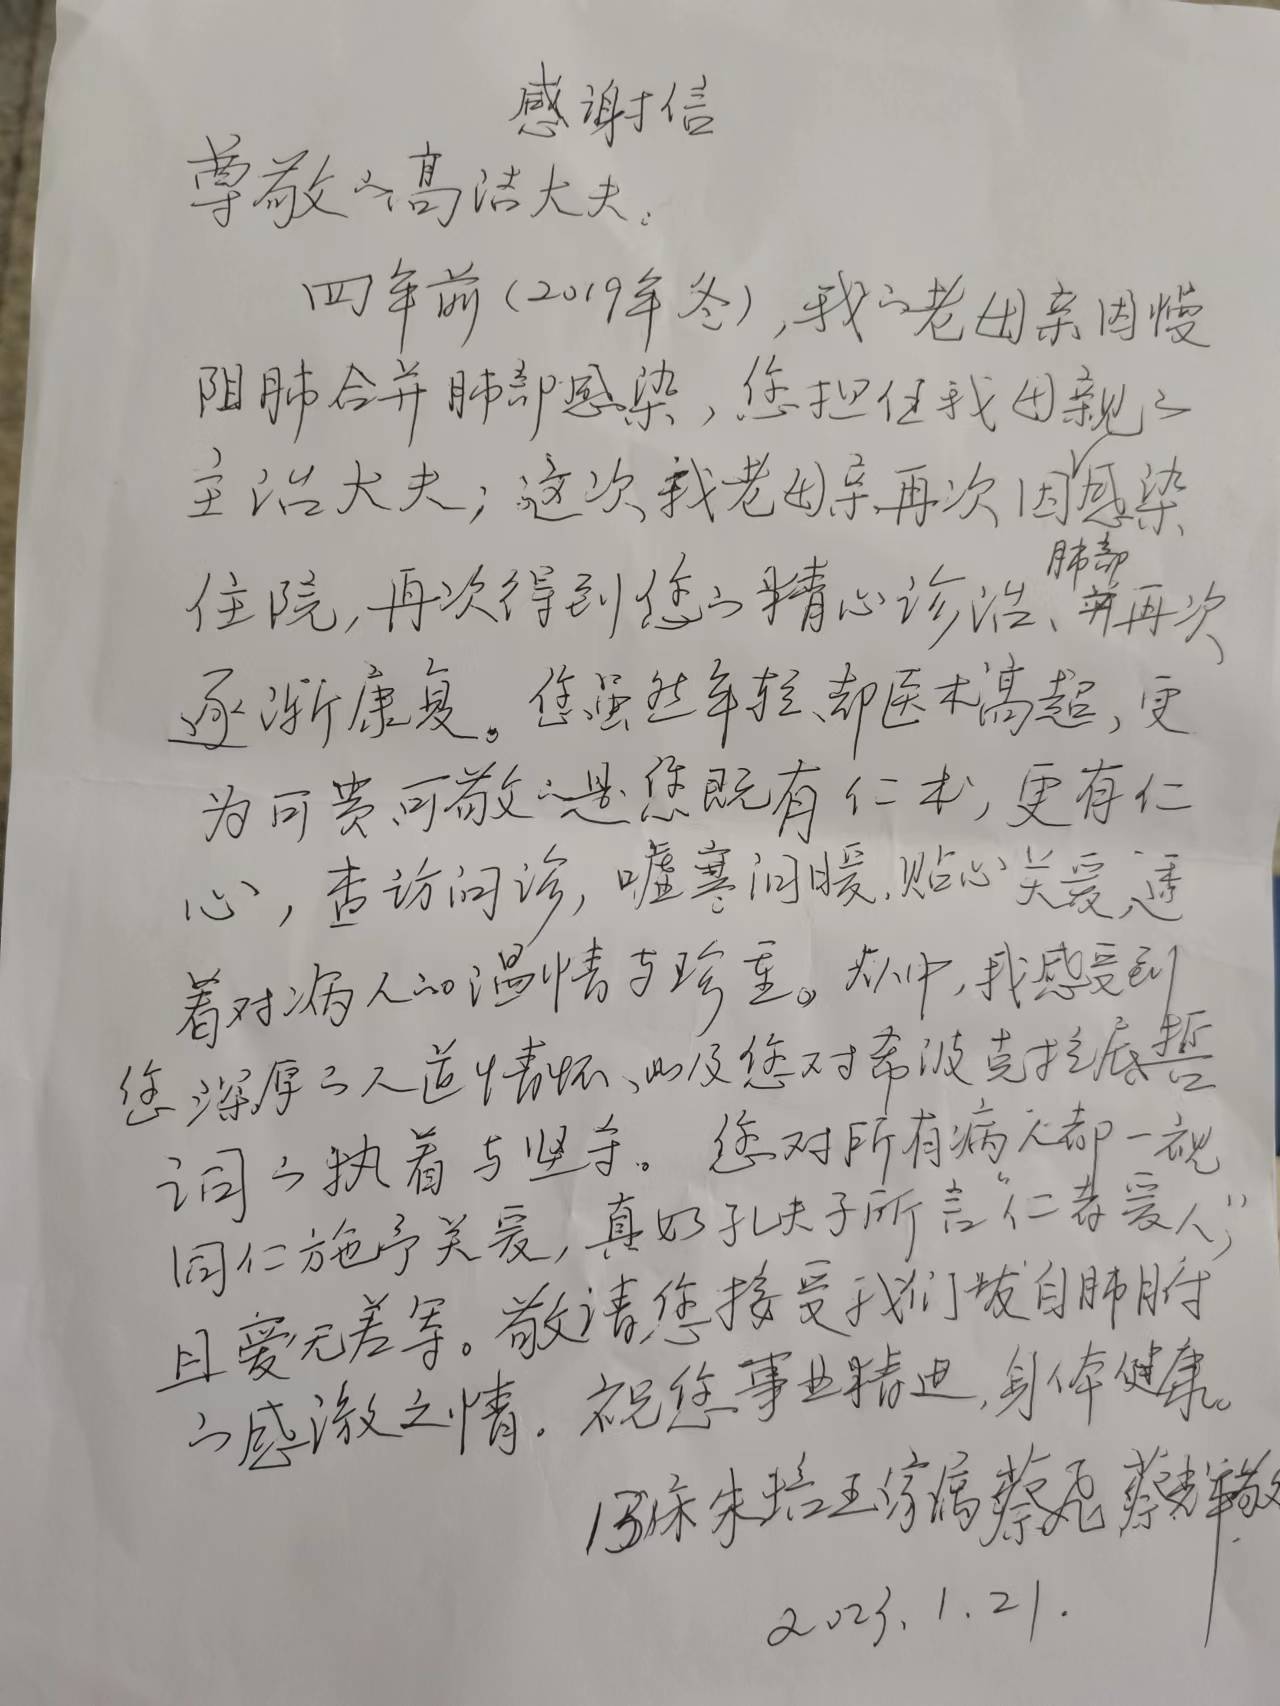 感谢信
尊敬的高洁大夫:
四年前(2019年冬),我的老母亲因慢
阻肺合并肺部感染,您担任我母亲之
主治大夫;这次,我老母亲再次因感染
肺部
住院,再次得到您的精心诊治、并再次
逐渐康复。您虽然年轻、却医术高超,更
为可贵可敬的是您既有仁术,更有仁
心,查访问诊,嘘寒问暖,贴心关爱,透
着对病人的温情与珍重。从中,我感受到
您深厚的人道情怀、以及您对希波克拉底誓
词的执着与坚守。您对所有病人都一视
同仁施予关爱,真如孔夫子所言“仁者爱人”,
且爱无差等。敬请您接受我们发自肺腑
的感激之情。祝您事业精进,身体健康。
13床朱培玉家属蔡飞 蔡辉敬
2023.1.21.